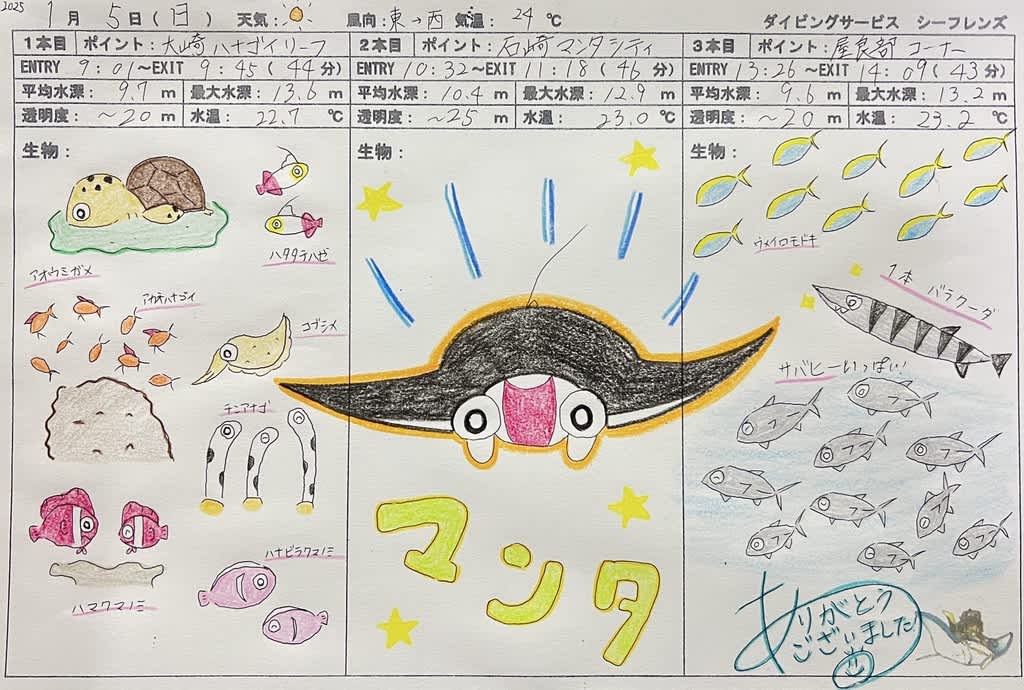 2025
1月 5日(日) 天気: 風向:東→西 気温: 24 ℃ ダイビングサービス シーフレンズ
1本目 ポイント:大崎ハナゴイリーフ
ENTRY 9:01~EXIT 9:45(44分)
平均水深: 9.7 m 最大水深: 13.6 m
透明度: ~20 m 水温: 22.7 ℃
生物:
アオウミガメ
ハタタテハゼ
アカネハナゴイ
コブシメ
チンアナゴ
ハマクマノミ
ハナビラクマノミ
2本目 ポイント:石崎マンタシティ
ENTRY 10:32~EXIT 11:18(46分)
平均水深: 10.4 m 最大水深: 12.9 m
透明度: ~25 m 水温: 23.0 ℃
生物:
マンタ
3本目 ポイント:屋良部コーナー
ENTRY 13:26~EXIT 14:09(43分)
平均水深: 9.6 m 最大水深: 13.2 m
透明度: ~20 m 水温: 23.2 ℃
生物:
ウメイロモドキ
1本バラクーダ
サバヒーいっぱい!
ありがとう
ございました!